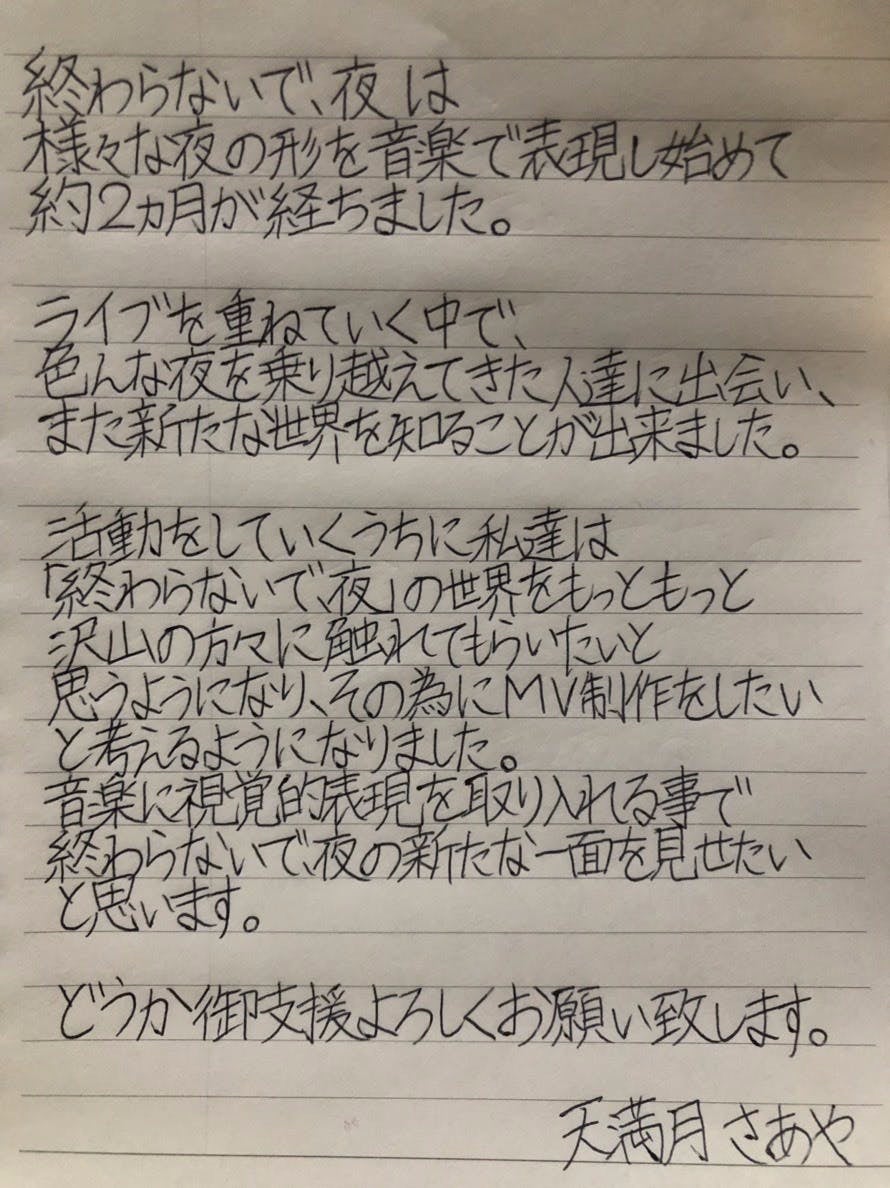 終わらないで、夜は
様々な夜の形を音楽で表現し始めて
約2ヵ月が経ちました。
ライブを重ねていく中で、
色んな夜を乗り越えてきた人達に出会い、
また新たな世界を知ることが出来ました。
活動をしていくうちに私達は
「終わらないで、夜」の世界をもっともっと
沢山の方々に触れてもらいたいと
思うようになり、その為にMV制作をしたい
と考えるようになりました。
音楽に視覚的表現を取り入れる事で
終わらないで、夜の新たな一面を見せたい
と思います。
どうか御支援よろしくお願い致します。
天満月さあや